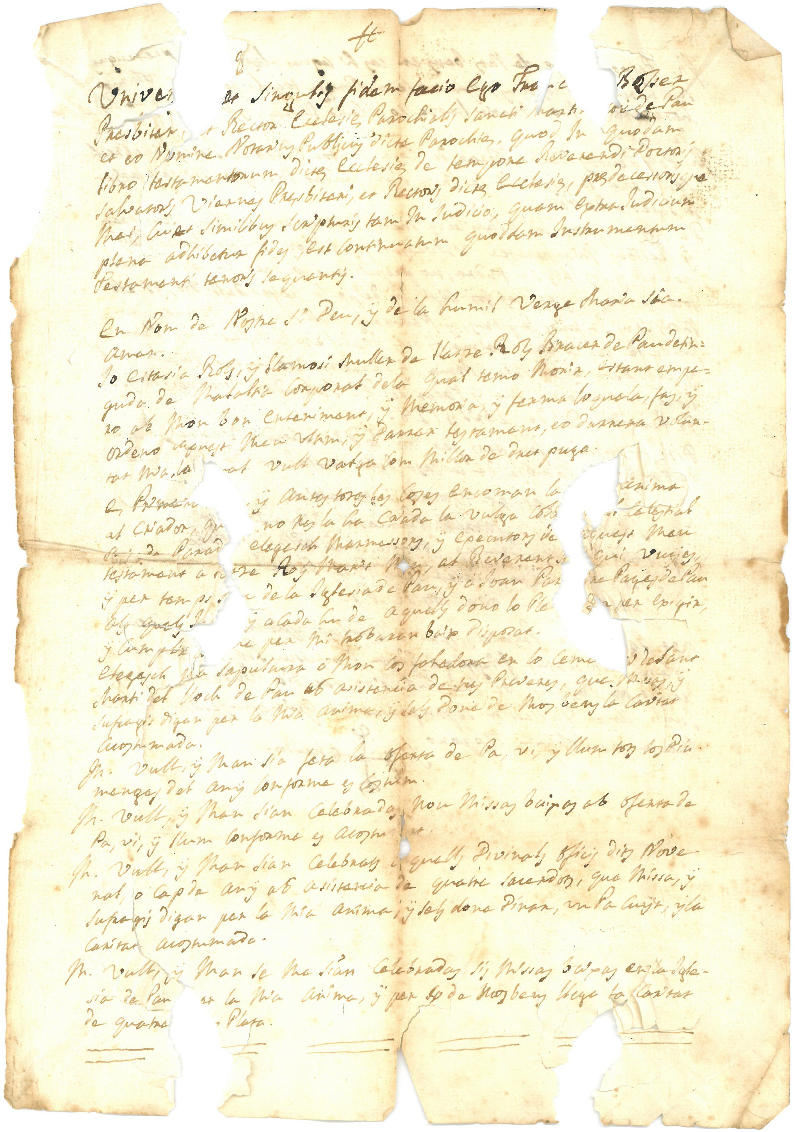 Univer et singulis fidem facio Ego Fran Boser
Presbiter, et Rector Ecclesiæ Parochialis Sancti Marti de Pau
et eo Nomine Notarius Publicus dictæ Parochiæ, quod In quodam
libro testamentorum dictæ Ecclesiæ de tempore Reverendi Doctoris
Salvatoris Viernes Presbiteri, et Rectoris dictæ Ecclesiæ, prædecessoris
Mei, cui et similibus scripturis tam In Judicio, quam extra Judicium
plena adhibetur fides est continuatum quoddam Instrumentum
testamenti tenoris sequentis.
En Nom de Nostre Sr. Deu, y de la humil Verge Maria Sia.
Amen.
Jo Eitasia Ros, y Llamosi Muller de Ros de Pau
de Malaltia Corporal de la qual temo Morir, estant empe-
ro ab Mon bon Enteniment, y Memoria, y ferma loquela, fas, y
ordeno aquest Meu ultim, y Darrer testament, eo darrera volun-
tat Mia, la al vull valga com Millor de dret puga.
E Primera y Antestotes les Coses Encoman la anima
al Criador, que no Res la ha Criada la vulga Col Celestial
de Parad elegesch Marmessors, y executors de aquest Meu
testament a Ros Marit Meu al Reverent
y per temps de la Iglesia de Pau, y a Joan Pages de Pau
als quals y a cada hu de aquells dono lo Ple per exigir,
y Cumplir per Mi trobaran baix disposat.
Elegesch la sepultura a Mon Cos fahedora en lo Ceme de Sant
Marti del Lloch de Pau ab asistencia de Preveres, que Missas, y
sufragis digan per la Mia anima, y sels done de Mos bens la Caritat
Acostumada.
It. Vull, y Man sia feta la oferta de Pa, vi, y llum tots los Diu-
menges del Any conforme es Costum.
It. Vull, y Man sian Celebradas Nou Missas baixas ab oferta de
Pa, vi, y llum conforme es Acostum
It. Vull, y Man sian Celebrats aquells Divinals oficis dits Nove
nal, o Cap de Any ab asistencia de quatre sacerdots, que Missa, y
sufragis digan per la Mia Anima, y sels done Dinar, un Pa Cuyt, y la
Caritat acostumada.
It. Vull, y Man se Me sian Celebradas sis Missas baixas en la Igle-
sia de Pau per la Mia Anima, y per de Mos bens llega la Caritat
de quatre Plata.